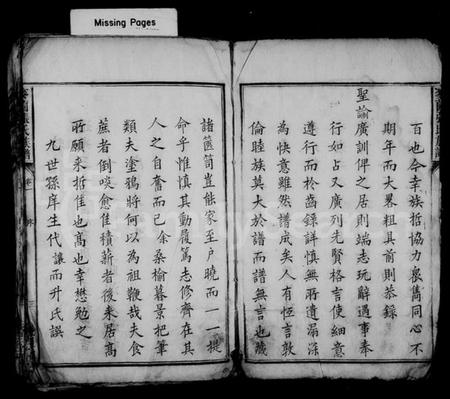 Missing Pages
百也今幸族哲協力裒雋同心不
期年而大畧粗具前則恭錄
聖諭廣訓俾之居則端志玩辭遇事奉
行如占又廣列先賢格言使細意
遵行而於齒錄詳慎無所遺漏深
為快意雖然譜成矣人有恆言敦
倫睦族莫大於譜而譜無言也藏
諸篋笥豈能家至戶曉而一一提
命乎惟慎其動履篤志修齊在其
人之自奮而已余桑榆暮景把筆
類夫塗鴉將何以為祖鞭哉夫食
蔗者倒啖愈佳積薪者後來居高
所願來哲惟也高也幸懋勉之
九世孫庠生代讓而升氏謨